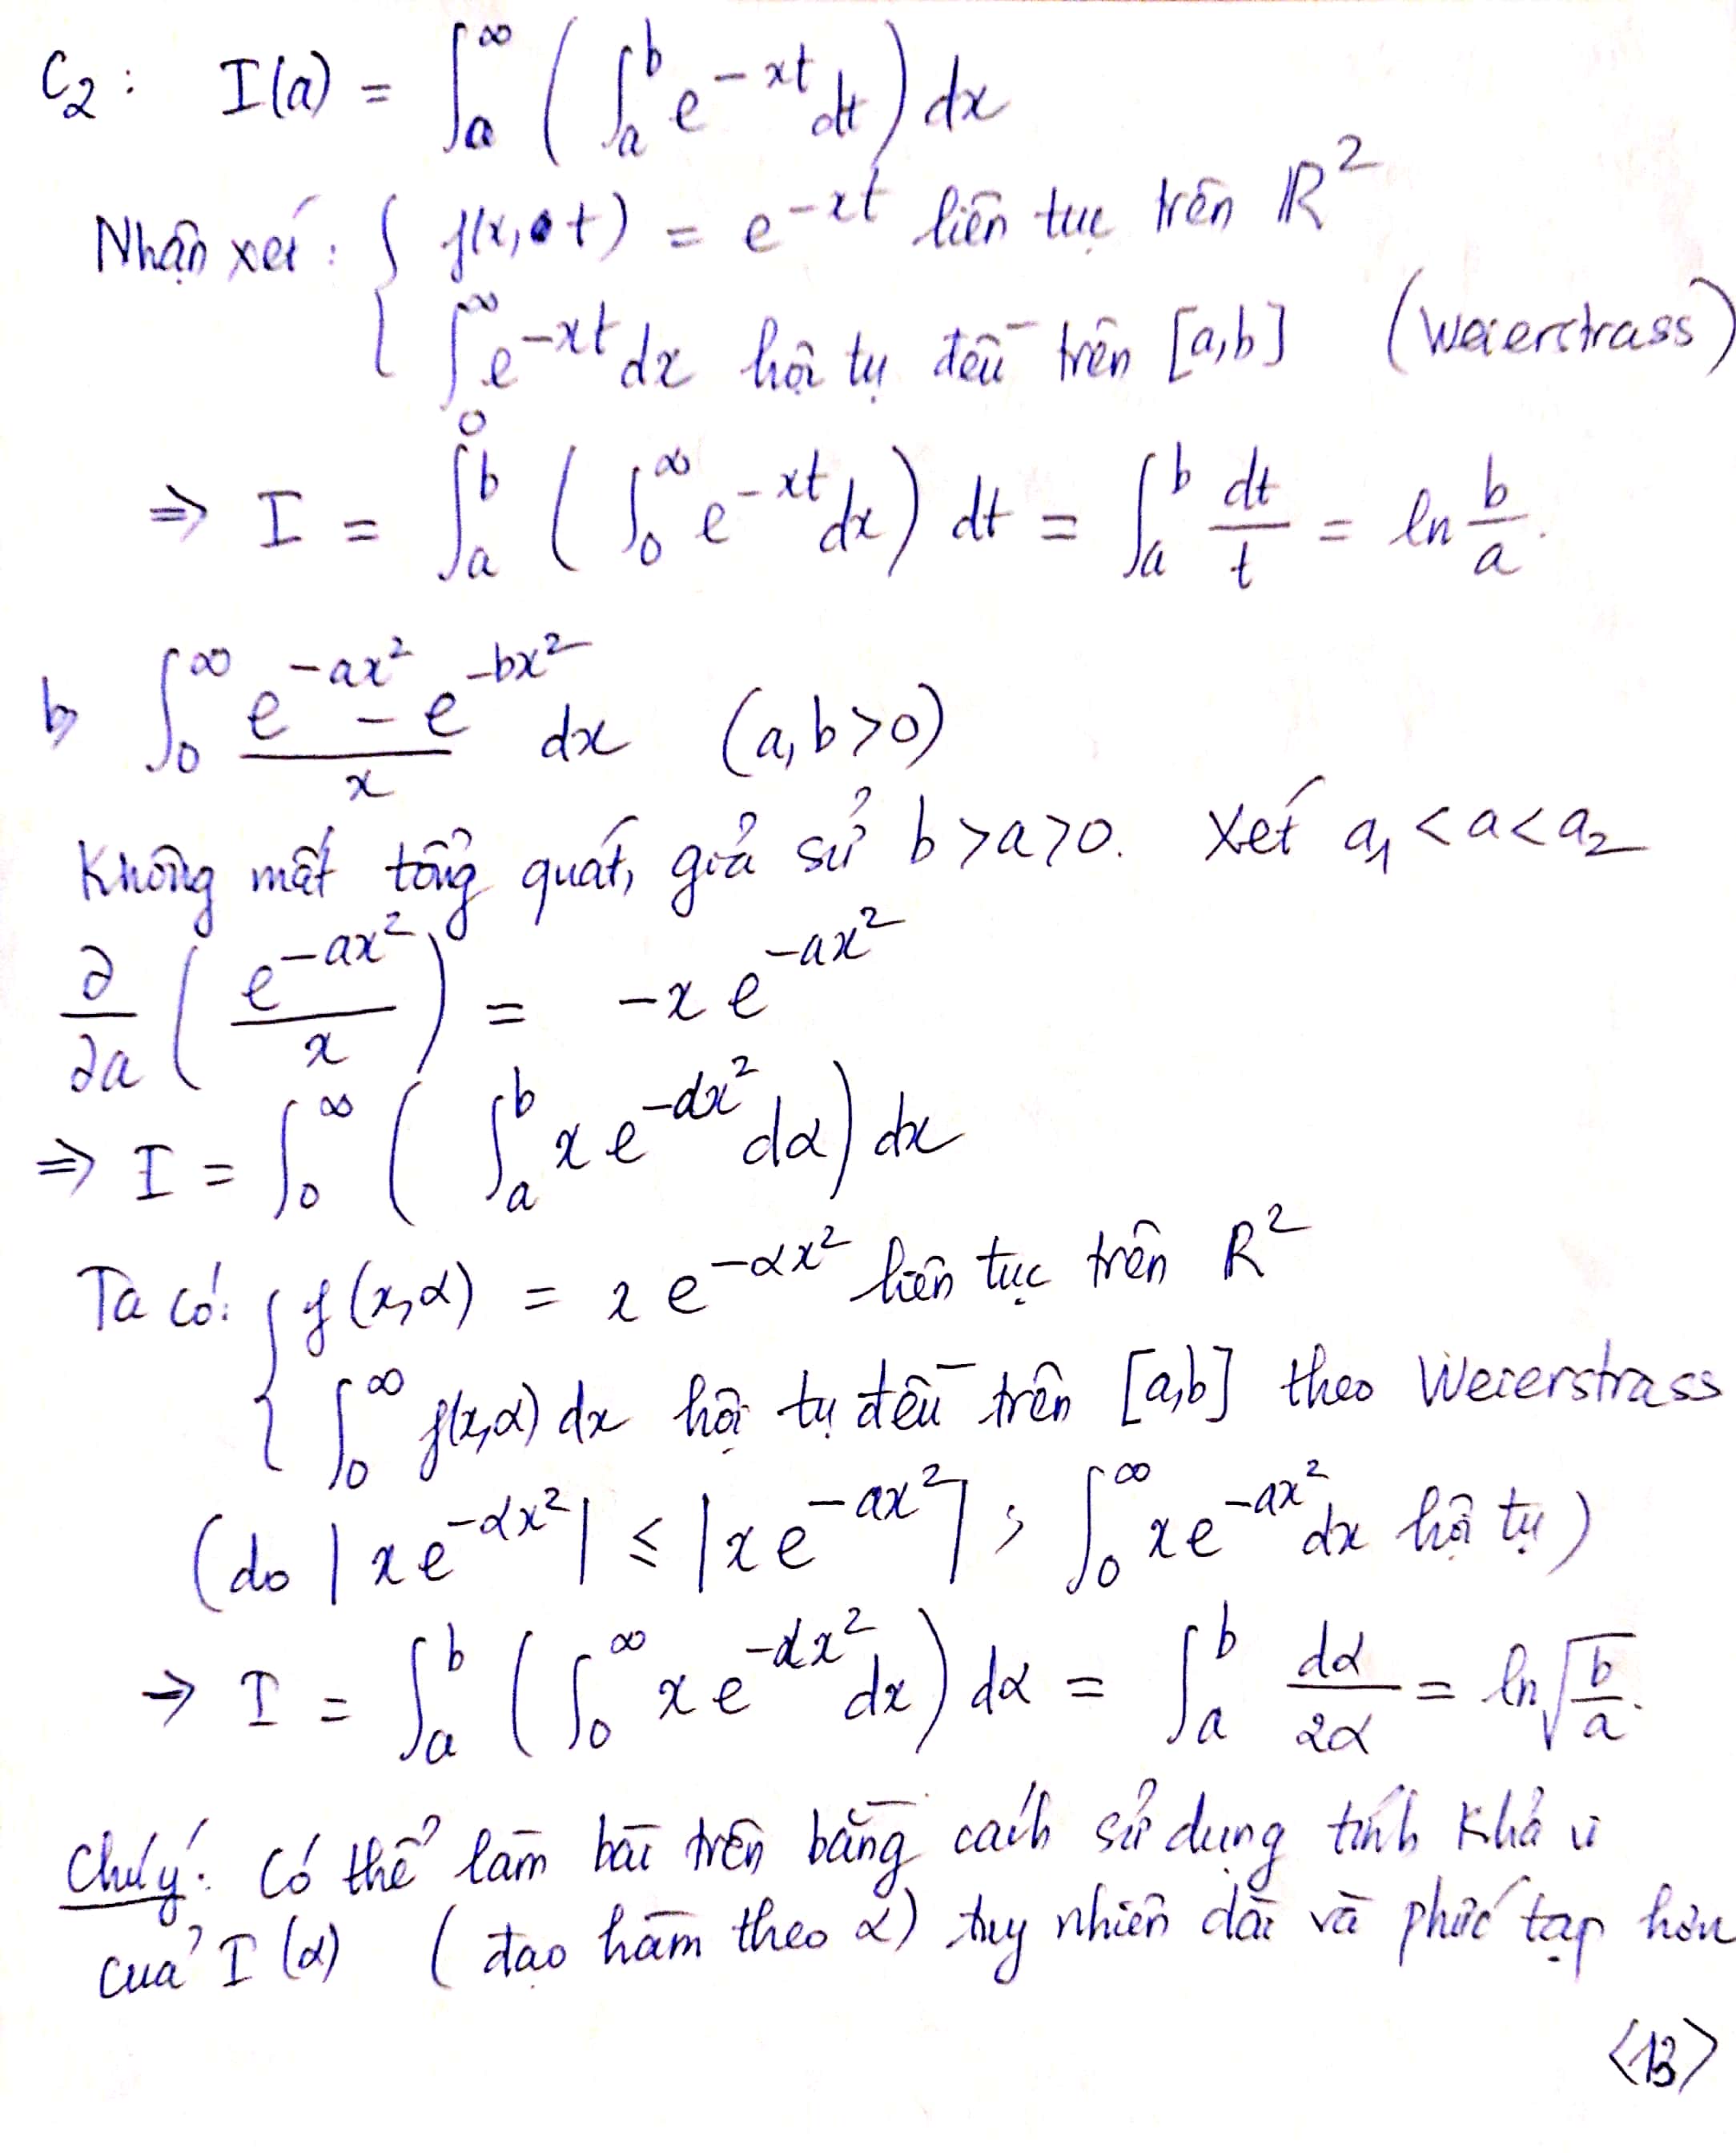 C₂ : I(a) = ∫ₐ^∞ ( ∫ₐ^b e^{-xt} dt ) dx
Nhận xét : { f(x, t) = e^{-xt} liên tục trên ℝ²
∫₀^∞ e^{-xt} dx hội tụ đều trên [a,b] (Weierstrass)
⇒ I = ∫ₐ^b ( ∫₀^∞ e^{-xt} dx ) dt = ∫ₐ^b dt/t = ln b/a.
b, ∫₀^∞ (e^{-ax²} - e^{-bx²})/x dx (a, b > 0)
Không mất tổng quát, giả sử b > a > 0. Xét a₁ < a < a₂
∂/∂a ( e^{-ax²}/x ) = -x e^{-ax²}
⇒ I = ∫₀^∞ ( ∫ₐ^b x e^{-αx²} dα ) dx
Ta có: { f(x,α) = x e^{-αx²} liên tục trên R²
∫₀^∞ f(x,α) dx hội tụ đều trên [a,b] theo Weierstrass
(do |x e^{-αx²}| ≤ |x e^{-ax²}| ; ∫₀^∞ x e^{-ax²} dx hội tụ)
→ I = ∫ₐ^b ( ∫₀^∞ x e^{-αx²} dx ) dα = ∫ₐ^b dα/2α = ln √(b/a).
Chú ý: Có thể làm bài trên bằng cách sử dụng tính khả vi
của I(α) ( đạo hàm theo α) tuy nhiên dài và phức tạp hơn
<13>